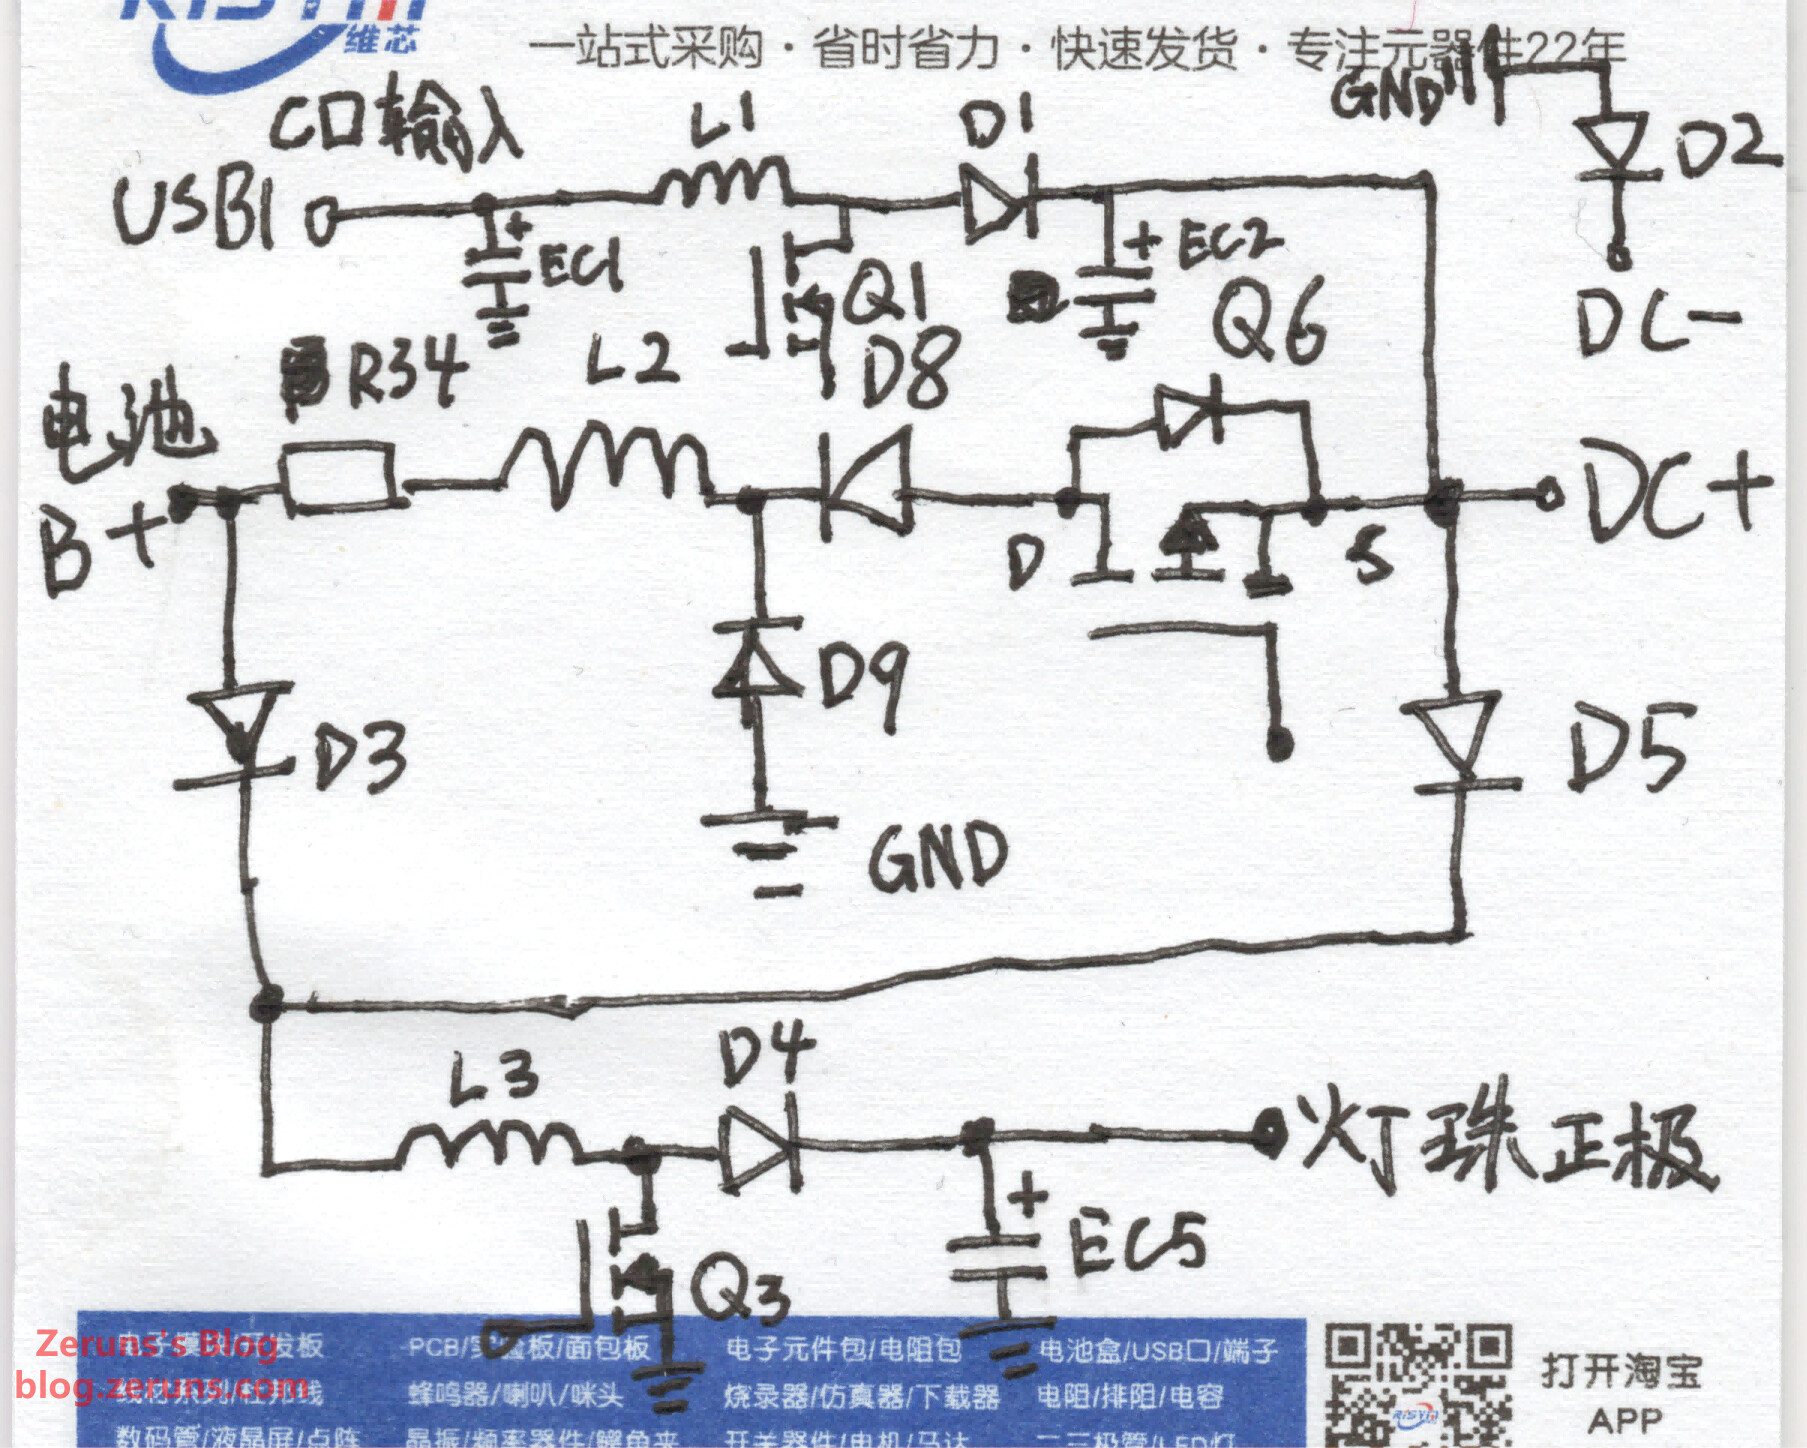 维芯
一站式采购·省时省力·快速发货·专注元器件22年
C口输入
L1
D1
GND
D2
USB1
+
EC1
Q1
+ EC2
Q6
DC-
电池
R34
L2
D8
B+
D
S
DC+
D9
D3
D5
GND
L3
D4
灯珠正极
+
EC5
Q3
Zeruns's Blog
blog.zeruns.com
PCB/实验板/面包板
电子元件包/电阻包
电池盒/USB口/端子
蜂鸣器/喇叭/咪头
烧录器/仿真器/下载器
电阻/排阻/电容
数码管/液晶屏/点阵
晶振/频率器件/鳄鱼夹
开关器件/电机/马达
二三极管/LED灯
RISYM
打开淘宝
APP